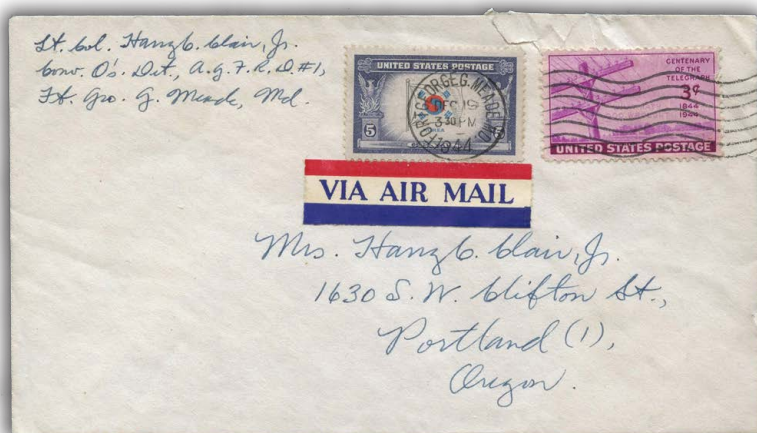 Lt. Col. Harry C. Clair, Jr.
Conv. O's. Det., A.G.F.R.D. #1,
Ft. Geo. G. Meade, Md.
UNITED STATES POSTAGE
5
FORT GEORGE G. MEADE, MD.
DEC 19
3 30 PM
1944
CENTENARY
OF THE
TELEGRAPH
3¢
1844
1944
UNITED STATES POSTAGE
VIA AIR MAIL
Mrs. Harry C. Clair, Jr.
1630 S.W. Clifton St.,
Portland (1),
Oregon.